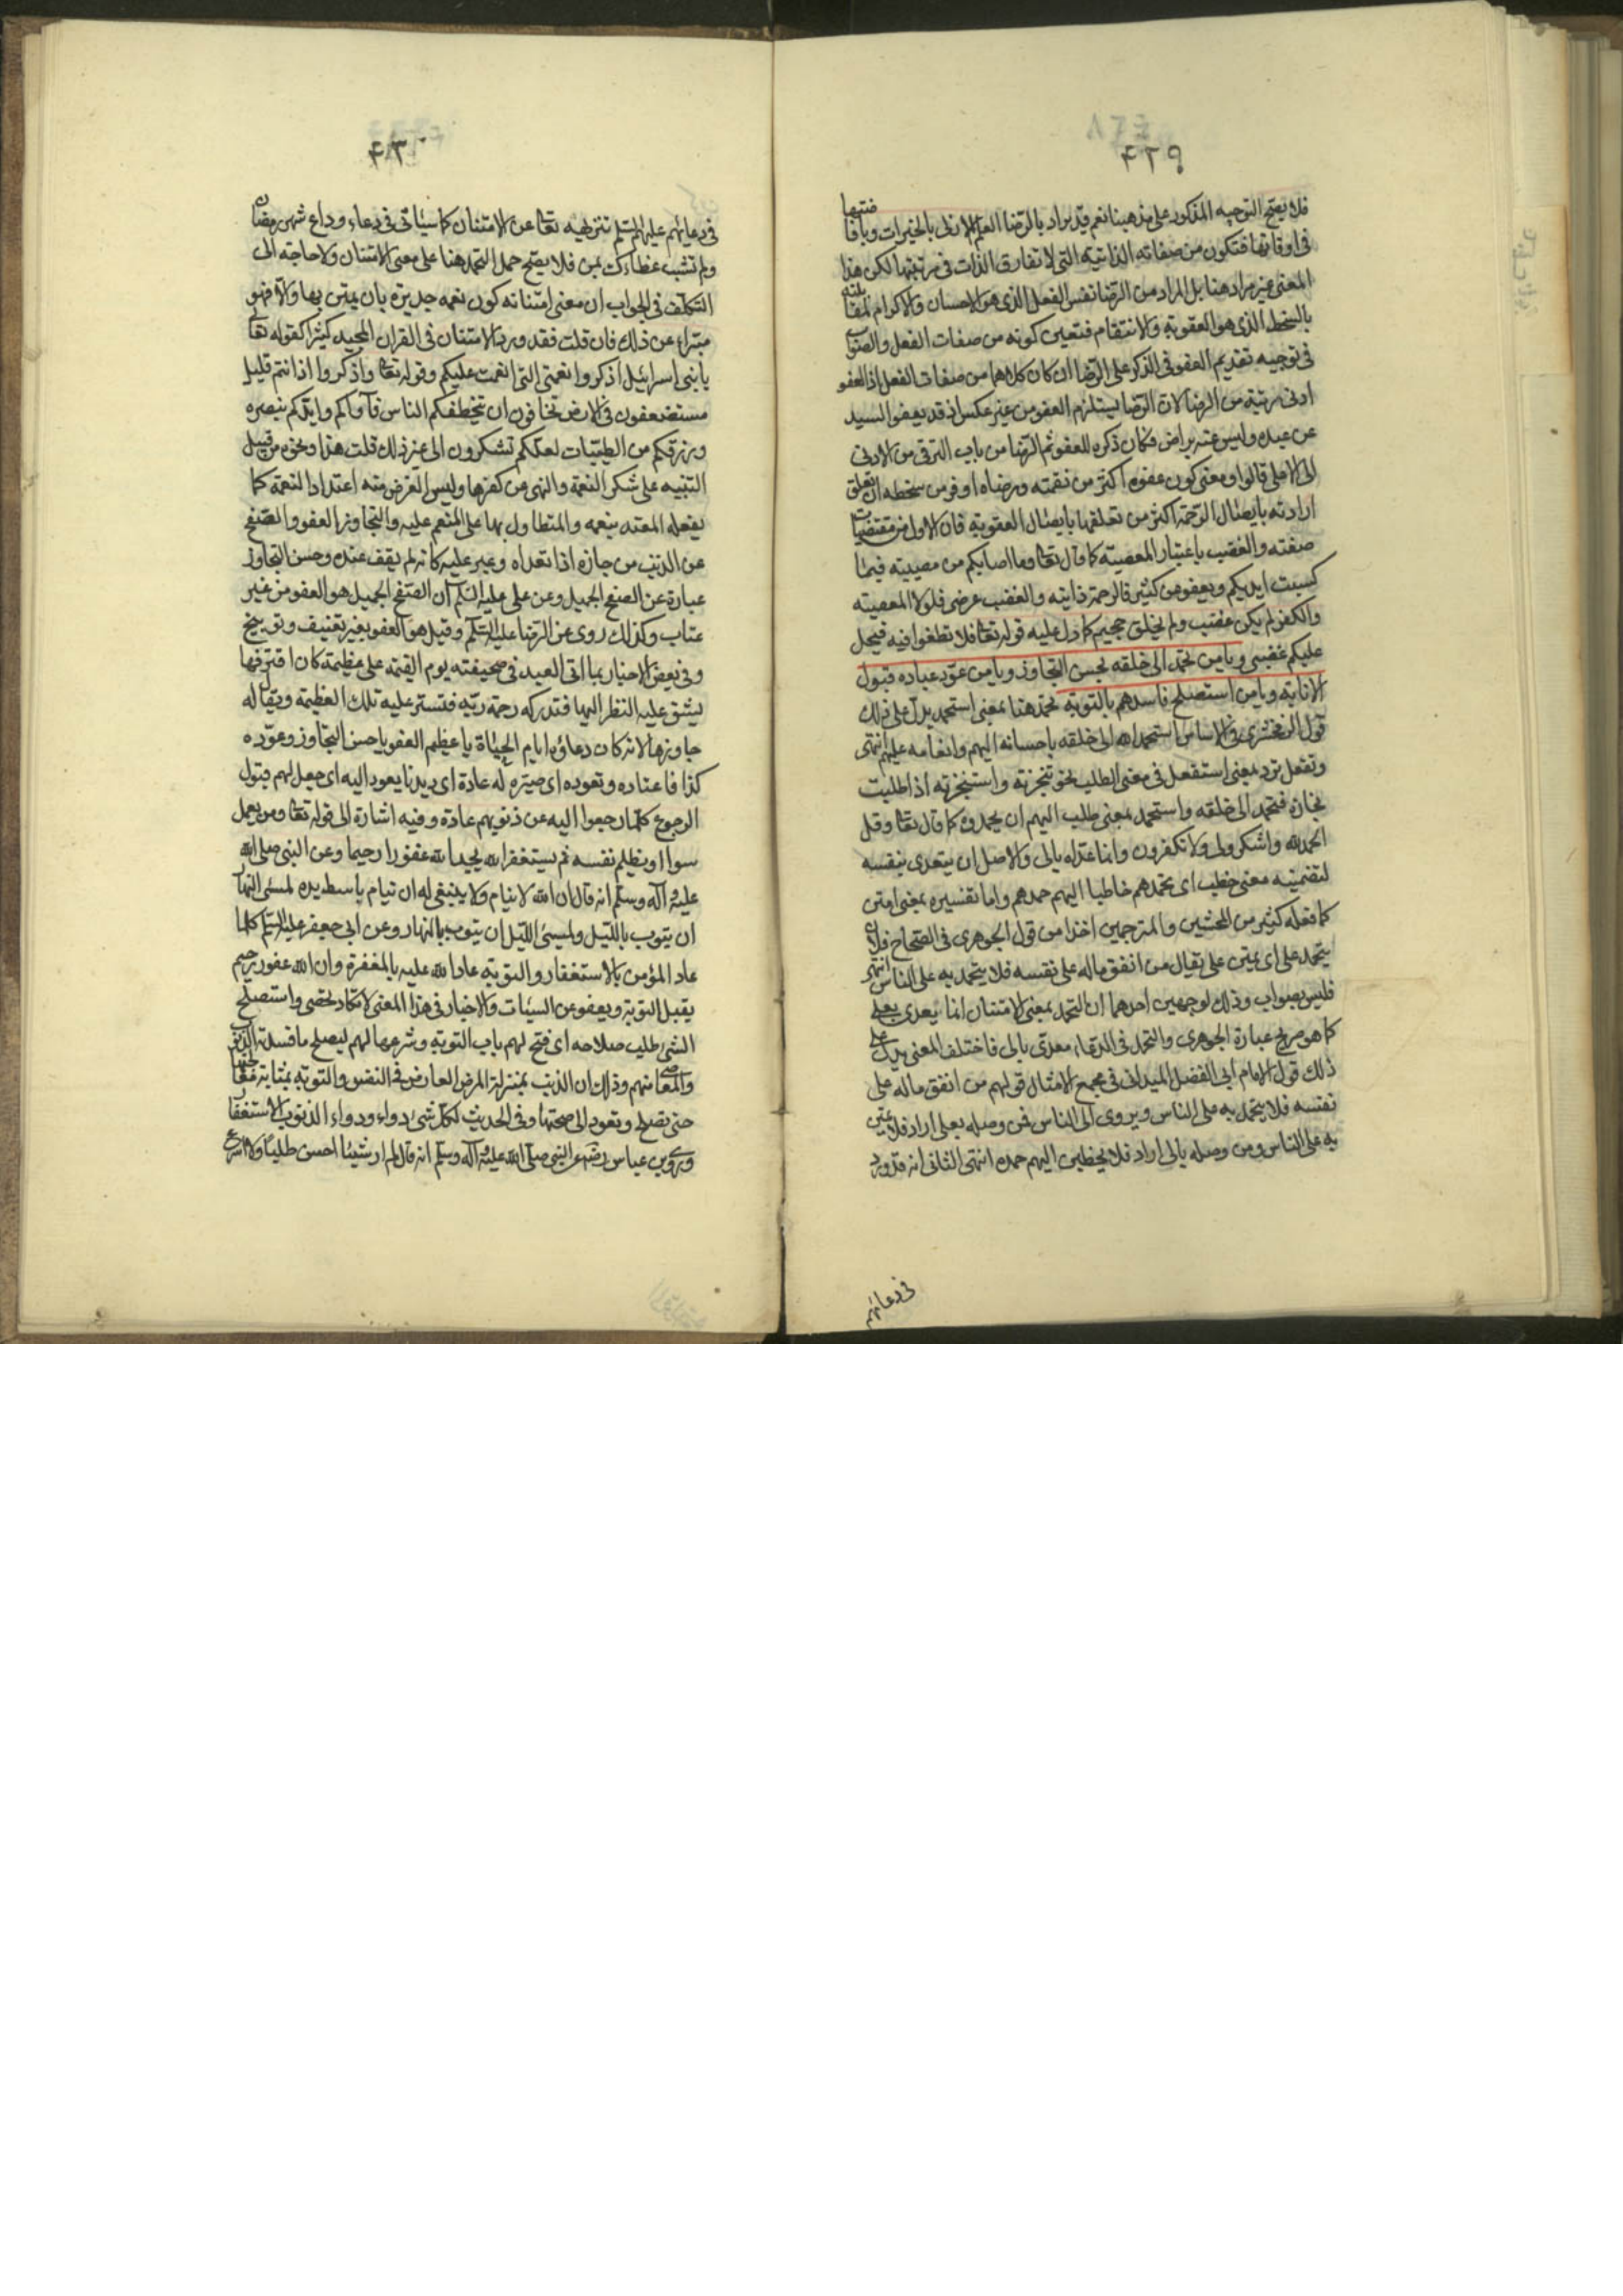 ٤٢٩
فلا يصح التوجيه المذكور على مذهبنا نعم قد يراد بالرضا العلم الازلى بالخيرات وبافاضتها
فى اوقاتها فتكون من صفاته الذاتية التى لا تفارق الذات فى مرتبتها لكن هذا
المعنى غير مراد هنا بل المراد من الرضا نفس الفعل الذى هو الاحسان والاكرام لمقابلته
بالسخط الذى هو العقوبة والانتقام فتعين كونه من صفات الفعل والصواب
فى توجيه تقديم العفو فى الذكر على الرضا ان كان كلاهما من صفات الفعل اذ العفو
ادنى مرتبة من الرضا لان الرضا يستلزم العفو من غير عكس اذ قد يعفو السيد
عن عبده وليس عنه براض فكان ذكره للعفو ثم الرضا من باب الترقى من الادنى
الى الاعلى قالوا ومعنى كون عفوه اكثر من نقمته ورضاه اوفر من سخطه ان تعلق
ارادته بايصال الرحمة اكثر من تعلقها بايصال العقوبة فان الاول من مقتضيات
صفته والغضب باعتبار المعصية كما قال تعا وما اصابكم من مصيبة فبما
كسبت ايديكم ويعفو عن كثير فالرحمة ذاتية والغضب عرضى فلولا المعصية
والكفر لم يكن غضب ولم يخلق جحيم كما دل عليه قوله تعا فلا تطغوا فيه فيحل
عليكم غضبى ويا من تحمد الى خلقه بحسن التجاوز ويا من عود عباده قبول
الانابة ويا من استصلح فاسدهم بالتوبة تحمد هنا بمعنى استحمد يدل على ذلك
قول الزمخشرى فى الاساس استحمد الله الى خلقه باحسانه اليهم وانعامه عليهم انتهى
وتفعل ترد بمعنى استفعل فى معنى الطلب نحو تنجزته واستنجزته اذا طلبت
نجازه فتحمد الى خلقه واستحمد بمعنى طلب اليهم ان يحمدوه كما قال تعا وقل
الحمد لله واشكروا لى ولا تكفرون وانما عداه بالى والاصل ان يتعدى بنفسه
لتضمينه معنى خطب اى تحمدهم خاطبا اليهم حمدهم واما تفسيره بمعنى امتن
كما فعله كثير من المحشين والمترجمين اخذا من قول الجوهرى فى الصحاح فلان
يتحمد على اى يمتن على يقال من انفق ماله على نفسه فلا يتحمد به على الناس انتهى
فليس بصواب وذلك لوجهين احدهما ان التحمد بمعنى الامتنان انما يعدى بعلى
كما هو صريح عبارة الجوهرى والتحمد فى الدعاء معدى بالى فاختلف المعنى يدل على
ذلك قول الامام ابى الفضل الميدانى فى مجمع الامثال قولهم من انفق ماله على
نفسه فلا يتحمد به على الناس ويروى الى الناس فمن وصله بعلى اراد فلا يمتن
به على الناس ومن وصله بالى اراد فلا يخطبن اليهم حمده انتهى الثانى انه قد ورد
فى دعائهم
٤٣٠
فى دعائهم عليهم السلم تنزيهه تعا عن الامتنان كما سياتى فى دعاء وداع شهر رمضان
ولم تشب عطاءك بمن فلا يصح حمل التحمد هنا على معنى الامتنان ولا حاجة الى
التكلف فى الجواب ان معنى امتنانه كون نعمه جديرة بان يمتن بها والا فهو
مبتراء عن ذلك فان قلت فقد ورد الامتنان فى القران المجيد كثيرا كقوله تعا
يا بنى اسرائيل اذكروا نعمتى التى انعمت عليكم وقوله تعا واذكروا اذ انتم قليل
مستضعفون فى الارض تخافون ان يتخطفكم الناس فآواكم وايدكم بنصره
ورزقكم من الطيبات لعلكم تشكرون الى غير ذلك قلت هذا ونحوه من قبيل
التنبيه على شكر النعمة والنهى عن كفرها وليس الغرض منه اعتدادا لنعمة كما
يفعله المعتد بنعمه والمتطاول بها على المنعم عليه والتجاوز العفو والصفح
عن الذنب من جازه اذا تعداه وعبر عليه كانه لم يقف عنده وحسن التجاوز
عبارة عن الصفح الجميل وعن على عليه السلم ان الصفح الجميل هو العفو من غير
عتاب وكذلك روى عن الرضا عليه السلم وقيل هو العفو بغير تعنيف وتوبيخ
وفى بعض الاخبار بما اتى العبد فى صحيفته يوم القيمة على عظيمة كان اقترفها
ليشق عليه النظر اليها فتدركه رحمة ربه فتستر عليه تلك العظيمة ويقال له
جاوزها لانه كان دعاؤه ايام الحياة يا عظيم العفو يا حسن التجاوز وعوده
كذا فاعتاده وتعوده اى صيره له عادة اى ديدنا يعود اليه اى جعل لهم قبول
الرجوع كلما رجعوا اليه عن ذنوبهم عادة وفيه اشارة الى قوله تعا ومن يعمل
سوءا او يظلم نفسه ثم يستغفر الله يجد الله غفورا رحيما وعن النبى صلى الله
عليه وآله وسلم انه قال ان الله لا ينام ولا ينبغى له ان ينام باسط يده لمسئ النهار
ان يتوب بالليل ولمسئ الليل ان يتوب بالنهار وعن ابى جعفر عليه السلم كلما
عاد المؤمن بالاستغفار والتوبة عاد الله عليه بالمغفرة وان الله غفور رحيم
يقبل التوبة ويعفو عن السيئات والاخبار فى هذا المعنى لا تكاد تحصى واستصلح
الشئ طلب صلاحه اى فتح لهم باب التوبة وشرعها لهم ليصلح ما افسدته الذنوب
والمعاصى منهم وذلك ان الذنب بمنزلة المرض العارض فى النفس والتوبة بمثابة
حتى تصلح وتعود الى صحتها وفى الحديث لكل شئ دواء ودواء الذنوب الاستغفار
وروى بن عباس رضه عن النبى صلى الله عليه وآله وسلم انه قال لم ار شيئا احسن طلبا ولا اسرع